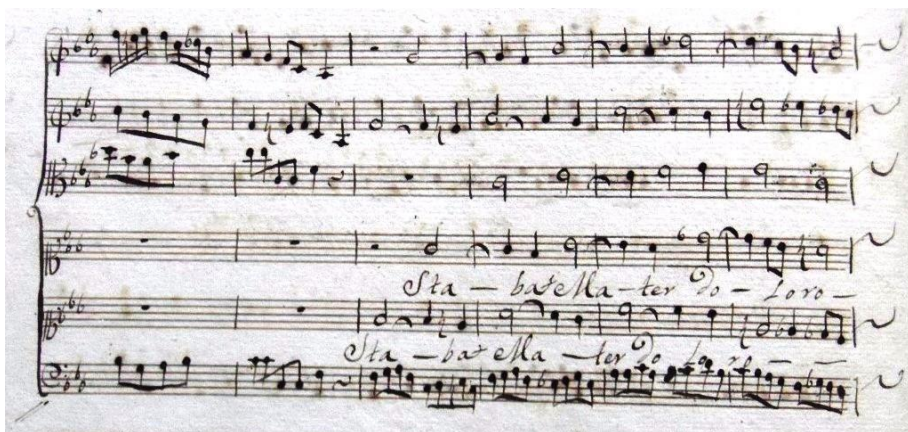 Sta – bat Ma – ter Do – Loro –
Sta – bat Ma – ter Do Lo ro – –